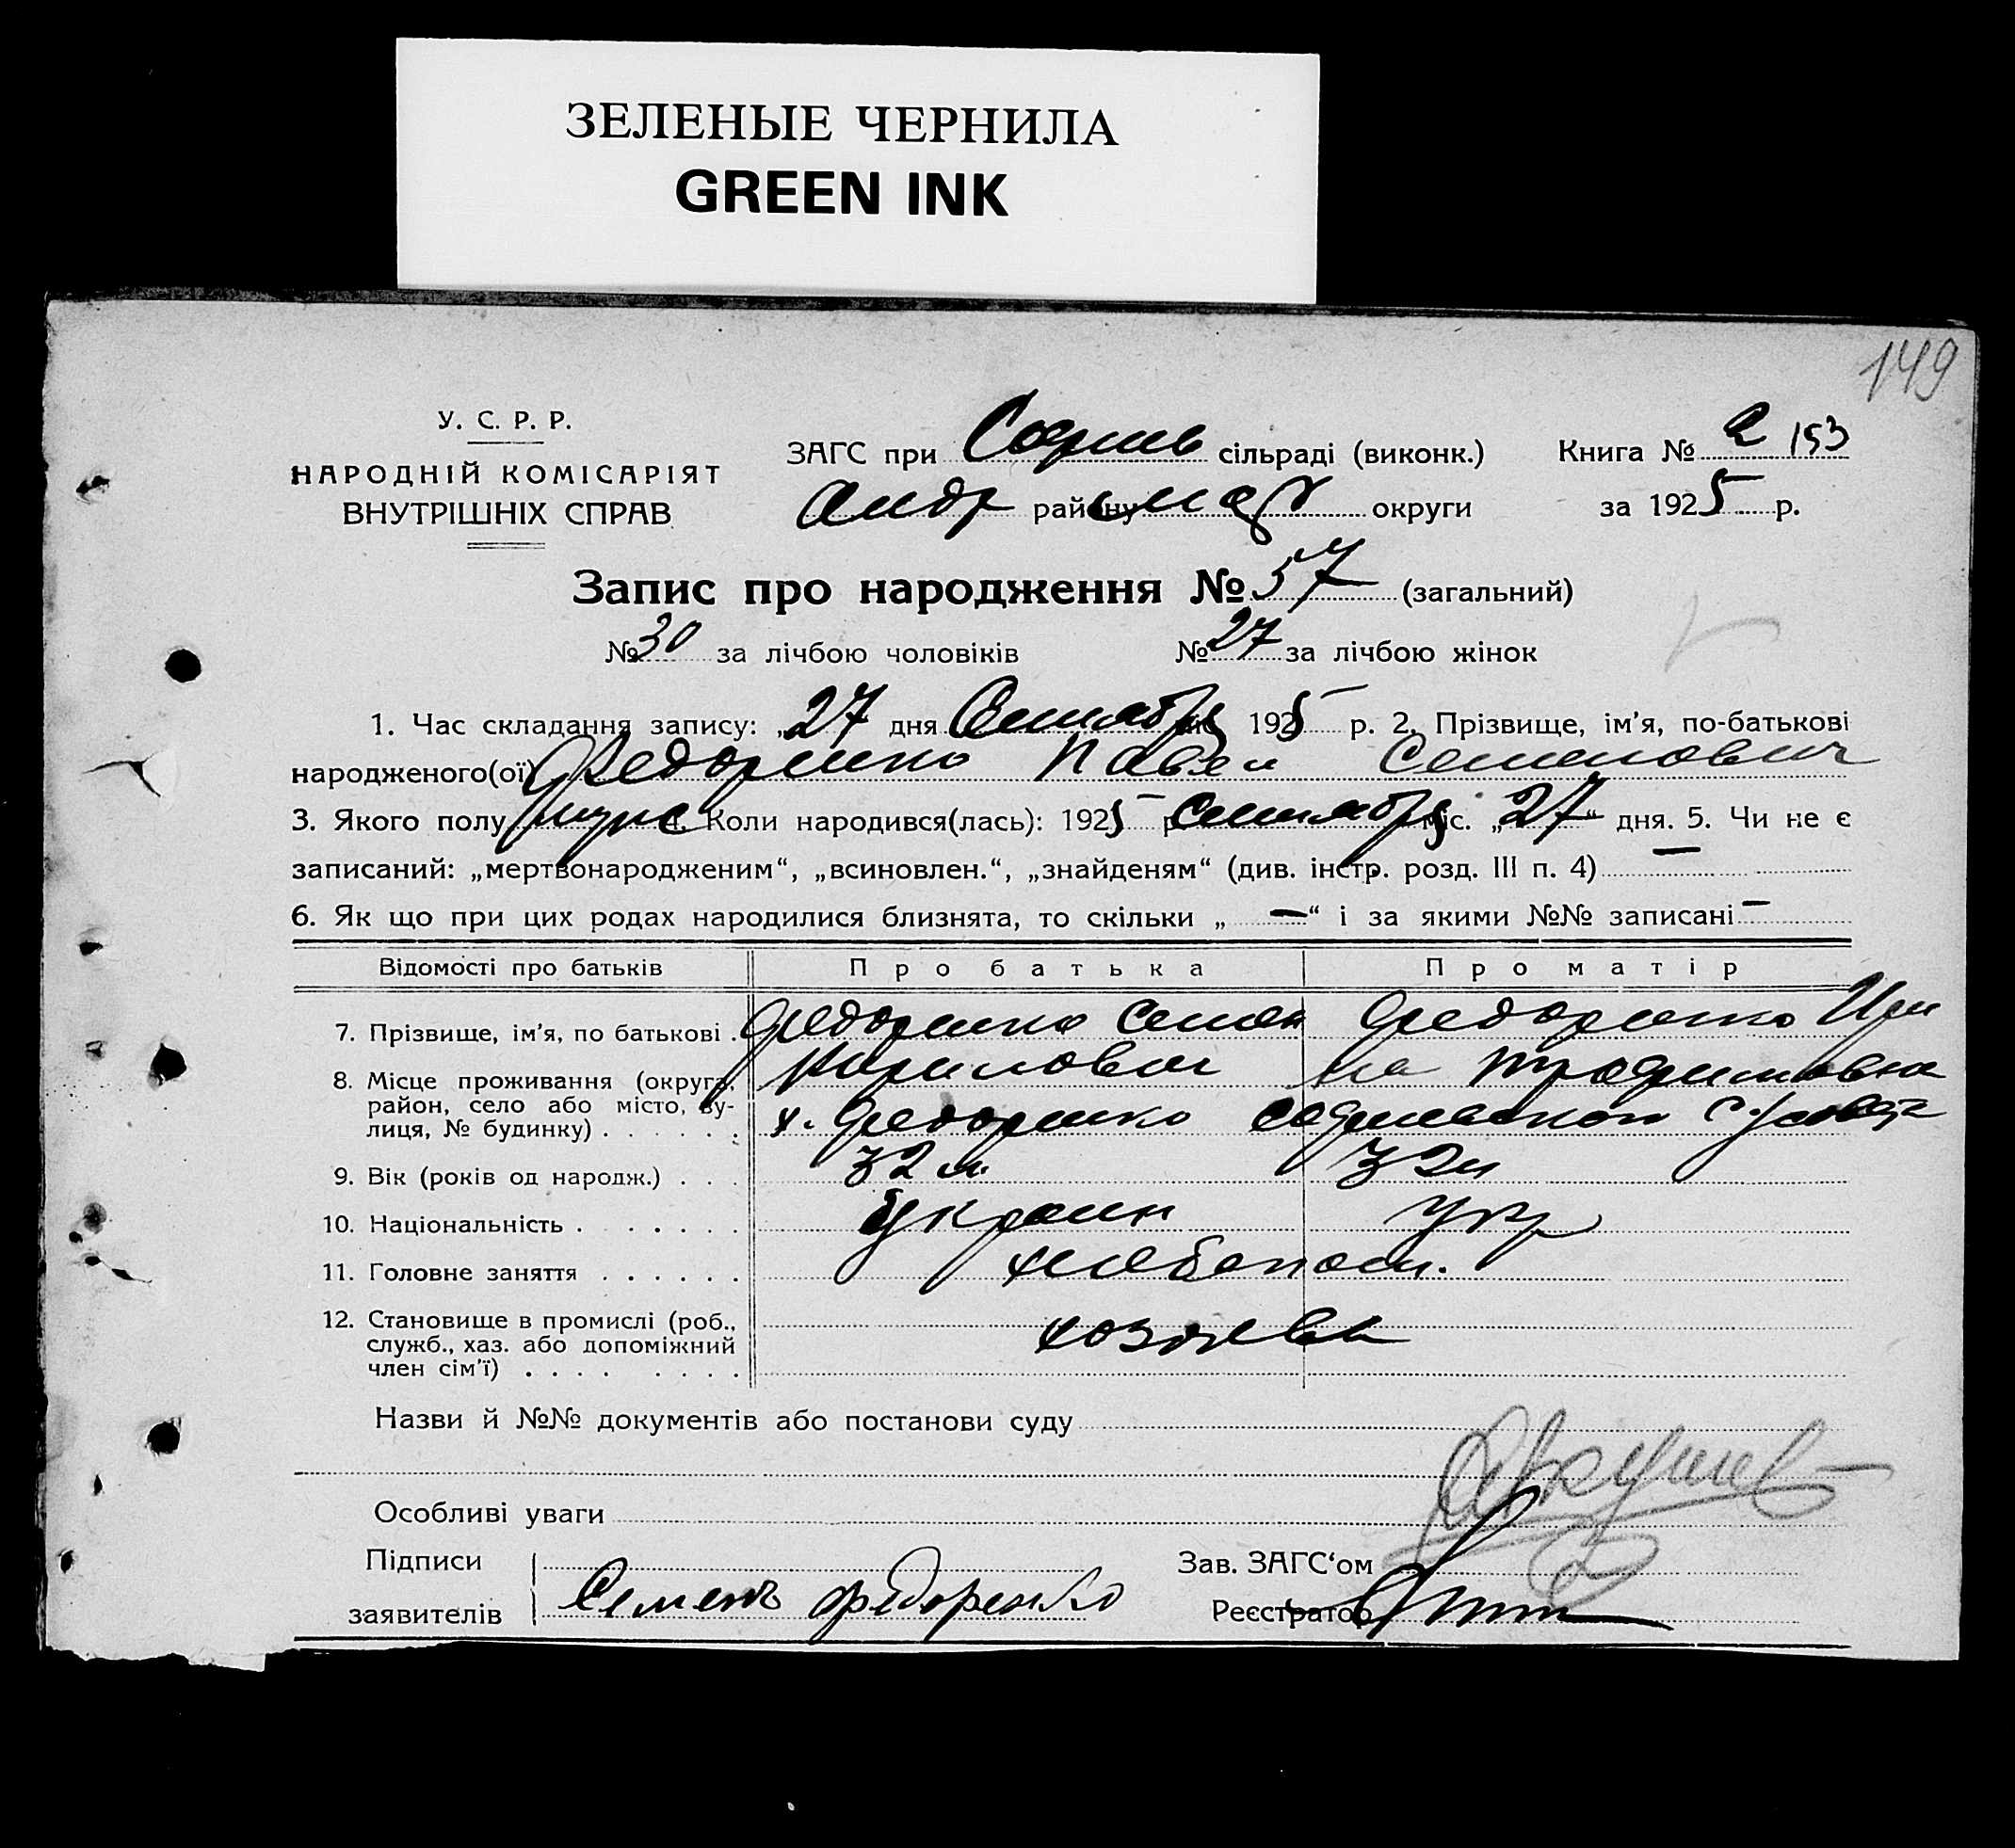 ЗЕЛЕНЫЕ ЧЕРНИЛА
GREEN INK
149
У. С. Р. Р.
НАРОДНІЙ КОМІСАРІЯТ
ВНУТРІШНІХ СПРАВ
ЗАГС при Софиев сільраді (виконк.)
Андр району округи
Книга № 2 153
за 1925 р.
Запис про народження № 57 (загальний)
№ 30 за лічбою чоловіків № 27 за лічбою жінок
1. Час складання запису: „27 дня Сентября 1925 р. 2. Прізвище, ім’я, по-батькові
народженого(ої) Федоренко Павел Семенович
3. Якого полу муж 4. Коли народився(лась): 1925 р Сентября міс. „27“ дня. 5. Чи не є
записаний: „мертвонародженим“, „всиновлен.“, „знайденям“ (див. інстр. розд. III п. 4) —
6. Як що при цих родах народилися близнята, то скільки „ — “ і за якими №№ записані —
Відомості про батьків Про батька Про матір
7. Прізвище, ім’я, по батькові . Федоренко Семен Федоренко Ири
Кирилович на Трофимовна
8. Місце проживання (округа, район, село або місто, вулиця, № будинку) . . . . . . х. Федоренко Софиевской с/совета
9. Вік (років од народж.) . . . 32 л. 32 л
10. Національність . . . . . . Украин Укр
11. Головне заняття . . . . . . хлебопаш.
12. Становище в промислі (роб., служб., хаз. або допоміжний член сім’ї) . . . . . . . . хозяева
Назви й №№ документів або постанови суду
Особливі уваги
Підписи
заявителів Семенъ Федоренко
Зав. ЗАГС‘ом
Реєстратор